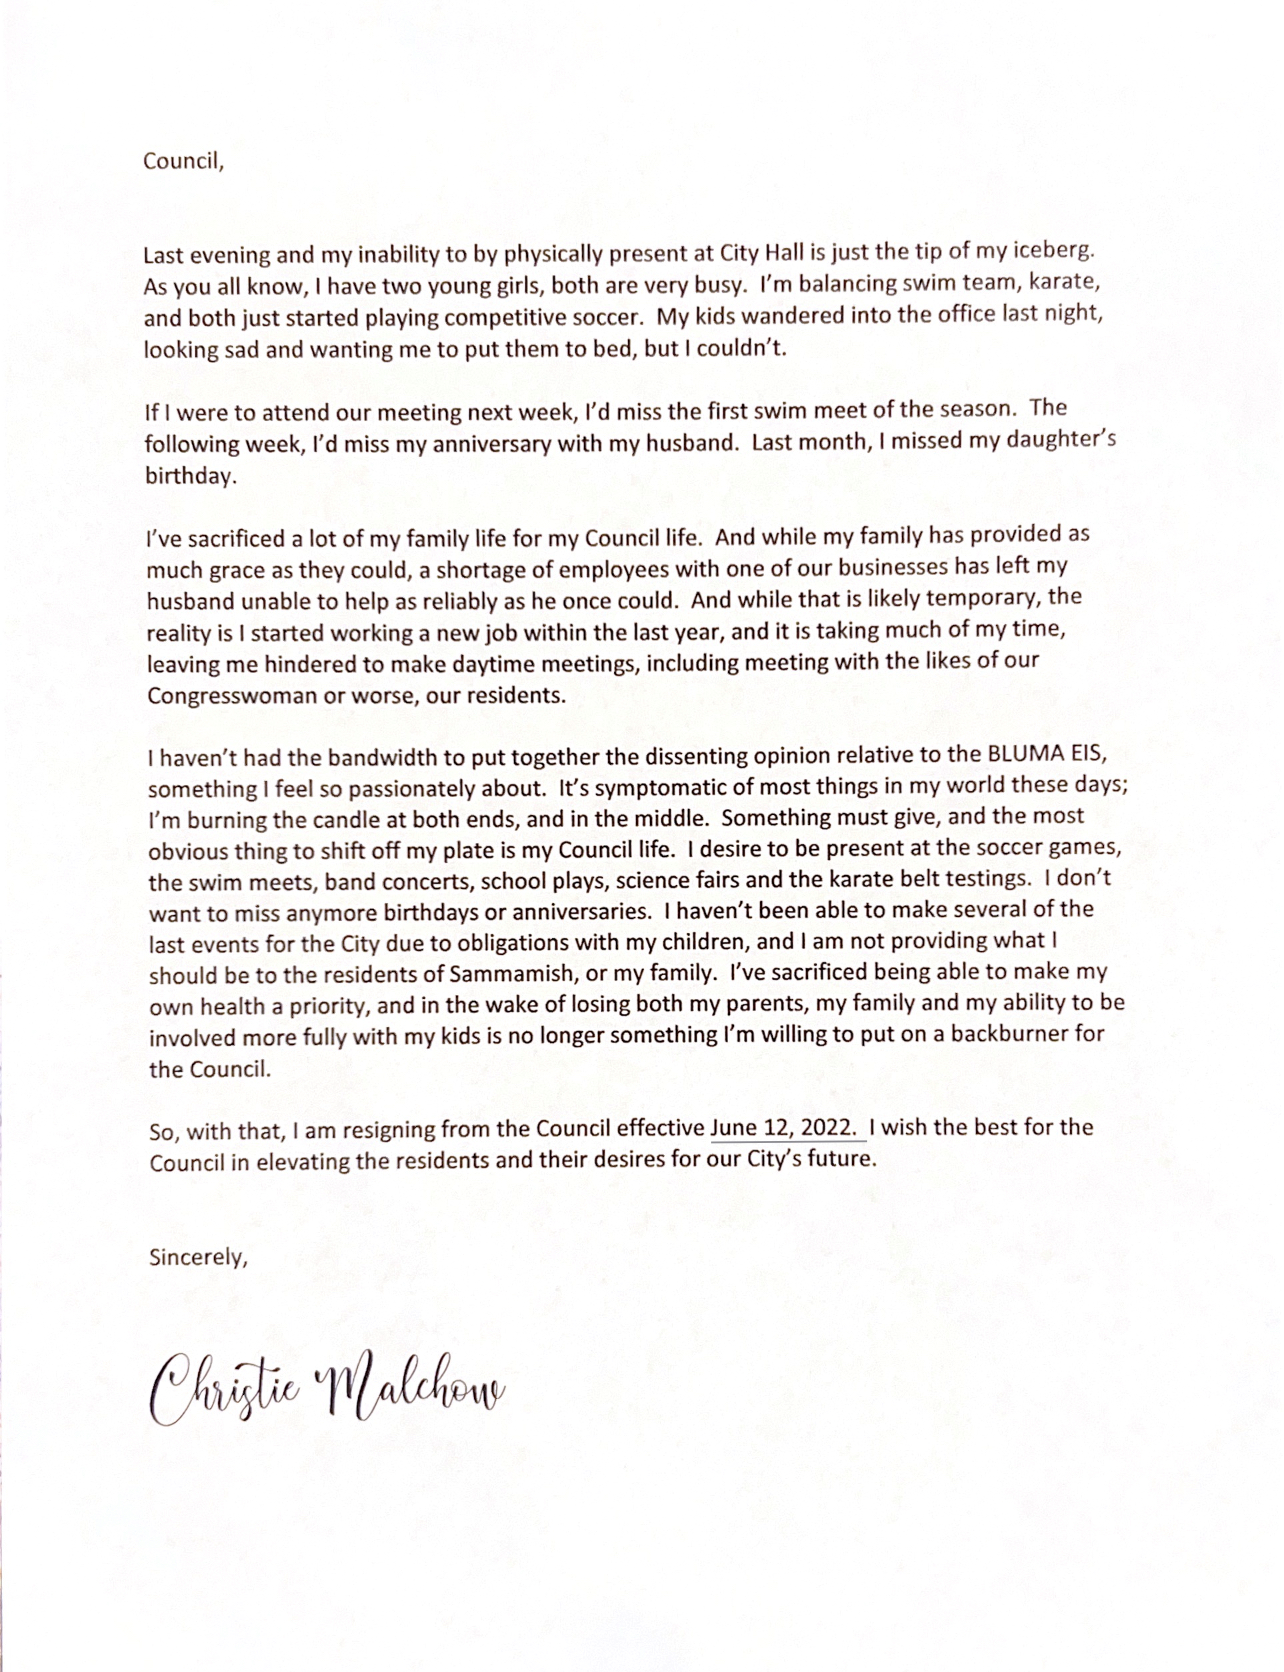 Council,
Last evening and my inability to by physically present at City Hall is just the tip of my iceberg.
As you all know, I have two young girls, both are very busy.  I'm balancing swim team, karate,
and both just started playing competitive soccer.  My kids wandered into the office last night,
looking sad and wanting me to put them to bed, but I couldn't.
If I were to attend our meeting next week, I'd miss the first swim meet of the season.  The
following week, I'd miss my anniversary with my husband.  Last month, I missed my daughter's
birthday.
I've sacrificed a lot of my family life for my Council life.  And while my family has provided as
much grace as they could, a shortage of employees with one of our businesses has left my
husband unable to help as reliably as he once could.  And while that is likely temporary, the
reality is I started working a new job within the last year, and it is taking much of my time,
leaving me hindered to make daytime meetings, including meeting with the likes of our
Congresswoman or worse, our residents.
I haven't had the bandwidth to put together the dissenting opinion relative to the BLUMA EIS,
something I feel so passionately about.  It's symptomatic of most things in my world these days;
I'm burning the candle at both ends, and in the middle.  Something must give, and the most
obvious thing to shift off my plate is my Council life.  I desire to be present at the soccer games,
the swim meets, band concerts, school plays, science fairs and the karate belt testings.  I don't
want to miss anymore birthdays or anniversaries.  I haven't been able to make several of the
last events for the City due to obligations with my children, and I am not providing what I
should be to the residents of Sammamish, or my family.  I've sacrificed being able to make my
own health a priority, and in the wake of losing both my parents, my family and my ability to be
involved more fully with my kids is no longer something I'm willing to put on a backburner for
the Council.
So, with that, I am resigning from the Council effective June 12, 2022.  I wish the best for the
Council in elevating the residents and their desires for our City's future.
Sincerely,
Christie Malchow